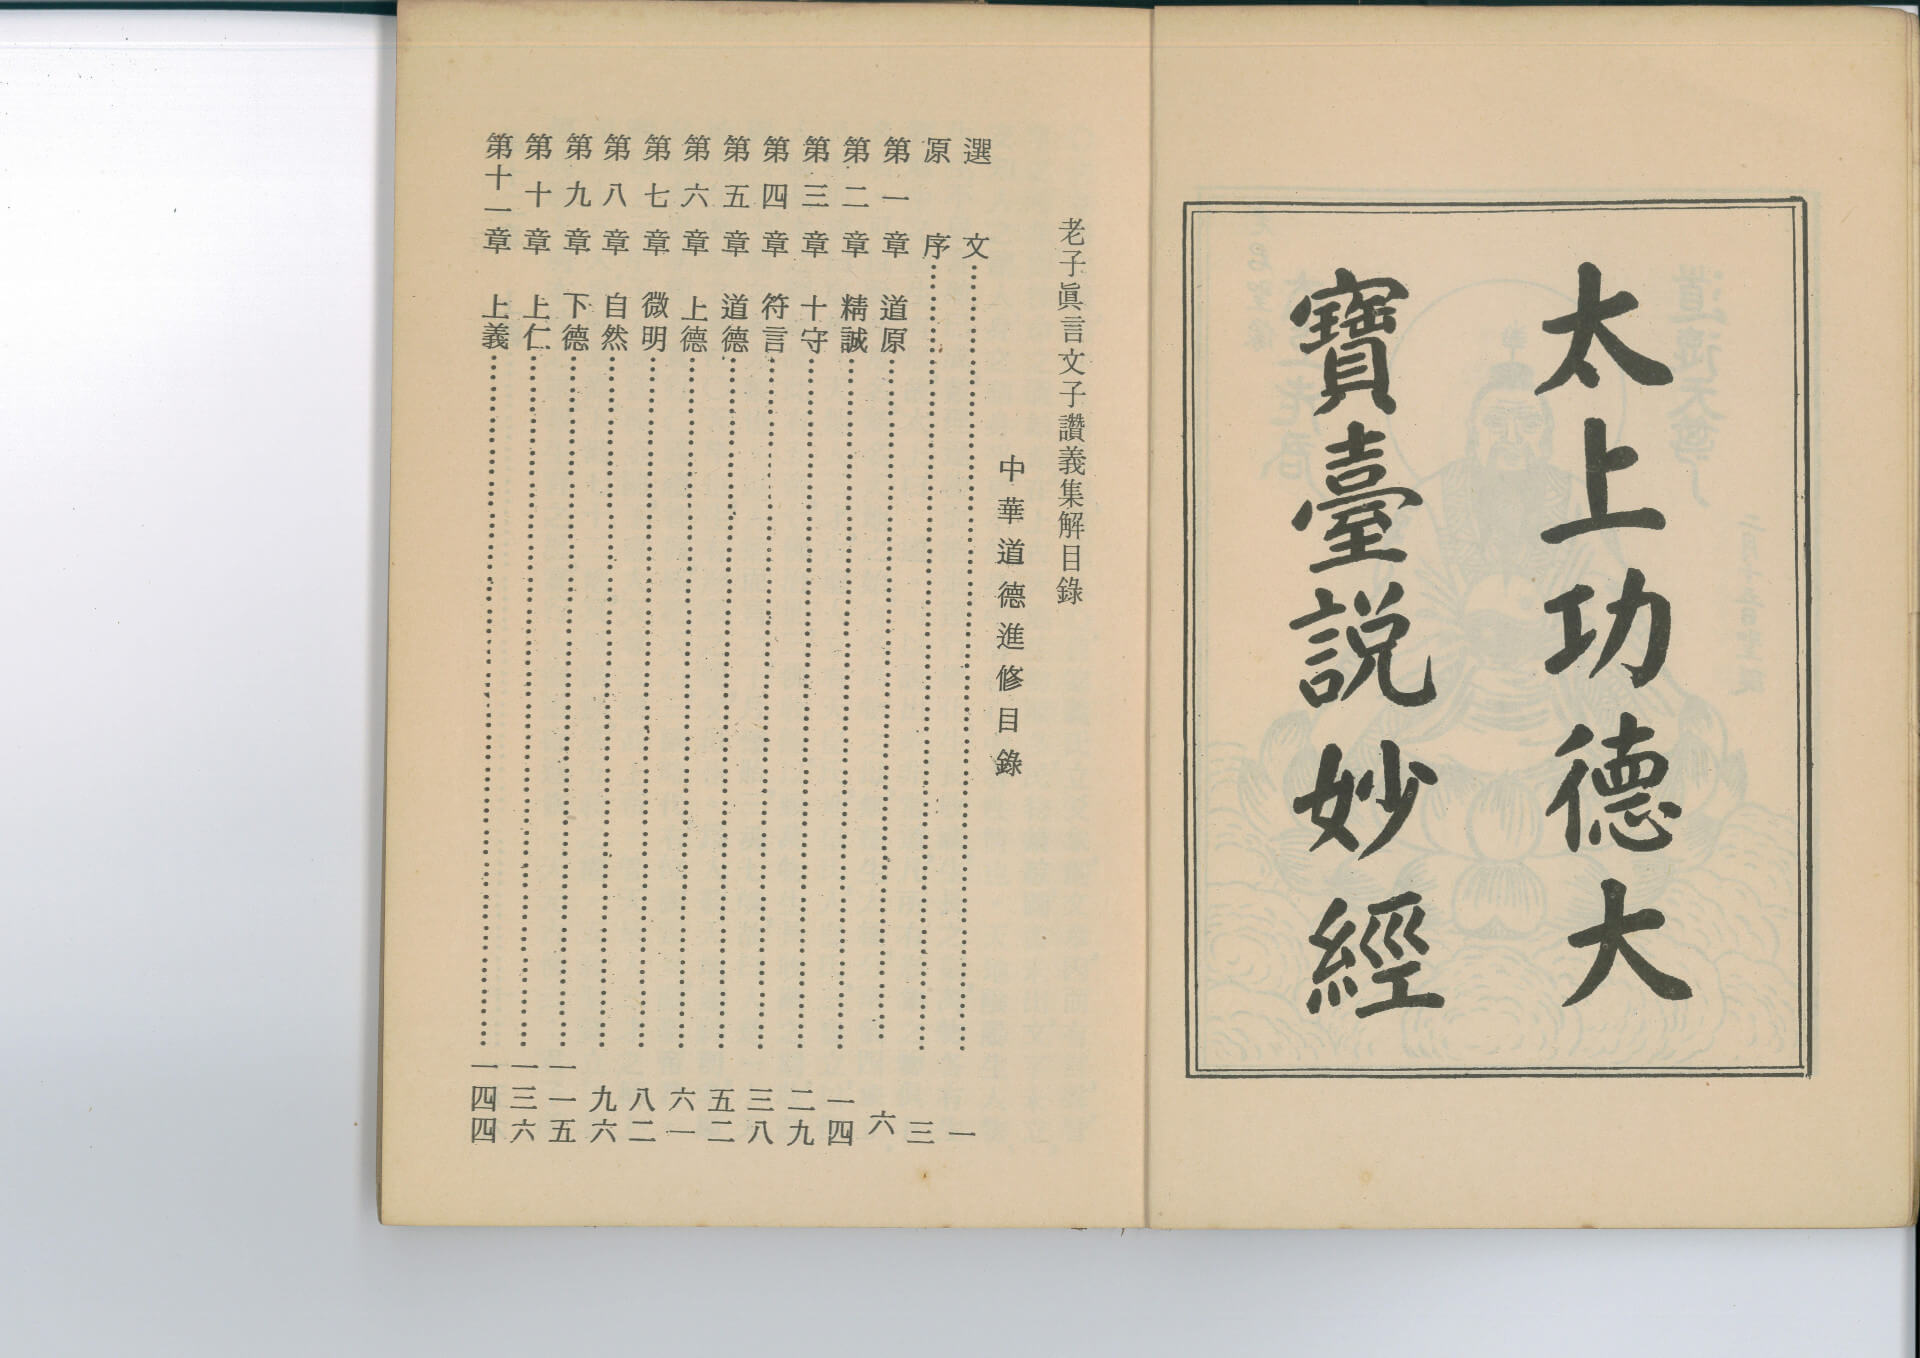 太上功德大
寶臺説妙經
老子眞言文子讚義集解目錄
中華道德進修目錄
選文⋯⋯一
原序⋯⋯三
第一章 道原⋯⋯六
第二章 精誠⋯⋯一四
第三章 十守⋯⋯二九
第四章 符言⋯⋯三八
第五章 道德⋯⋯五二
第六章 上德⋯⋯六一
第七章 微明⋯⋯八二
第八章 自然⋯⋯九六
第九章 下德⋯⋯一一五
第十章 上仁⋯⋯一三六
第十一章 上義⋯⋯一四四